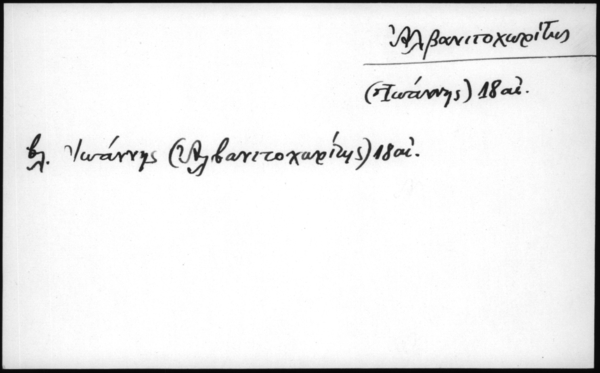 Ἀλβανιτοχωρίτης
(Ἰωάννης) 18 αἰ.
βλ. Ἰωάννης (Ἀλβανιτοχωρίτης) 18 αἰ.